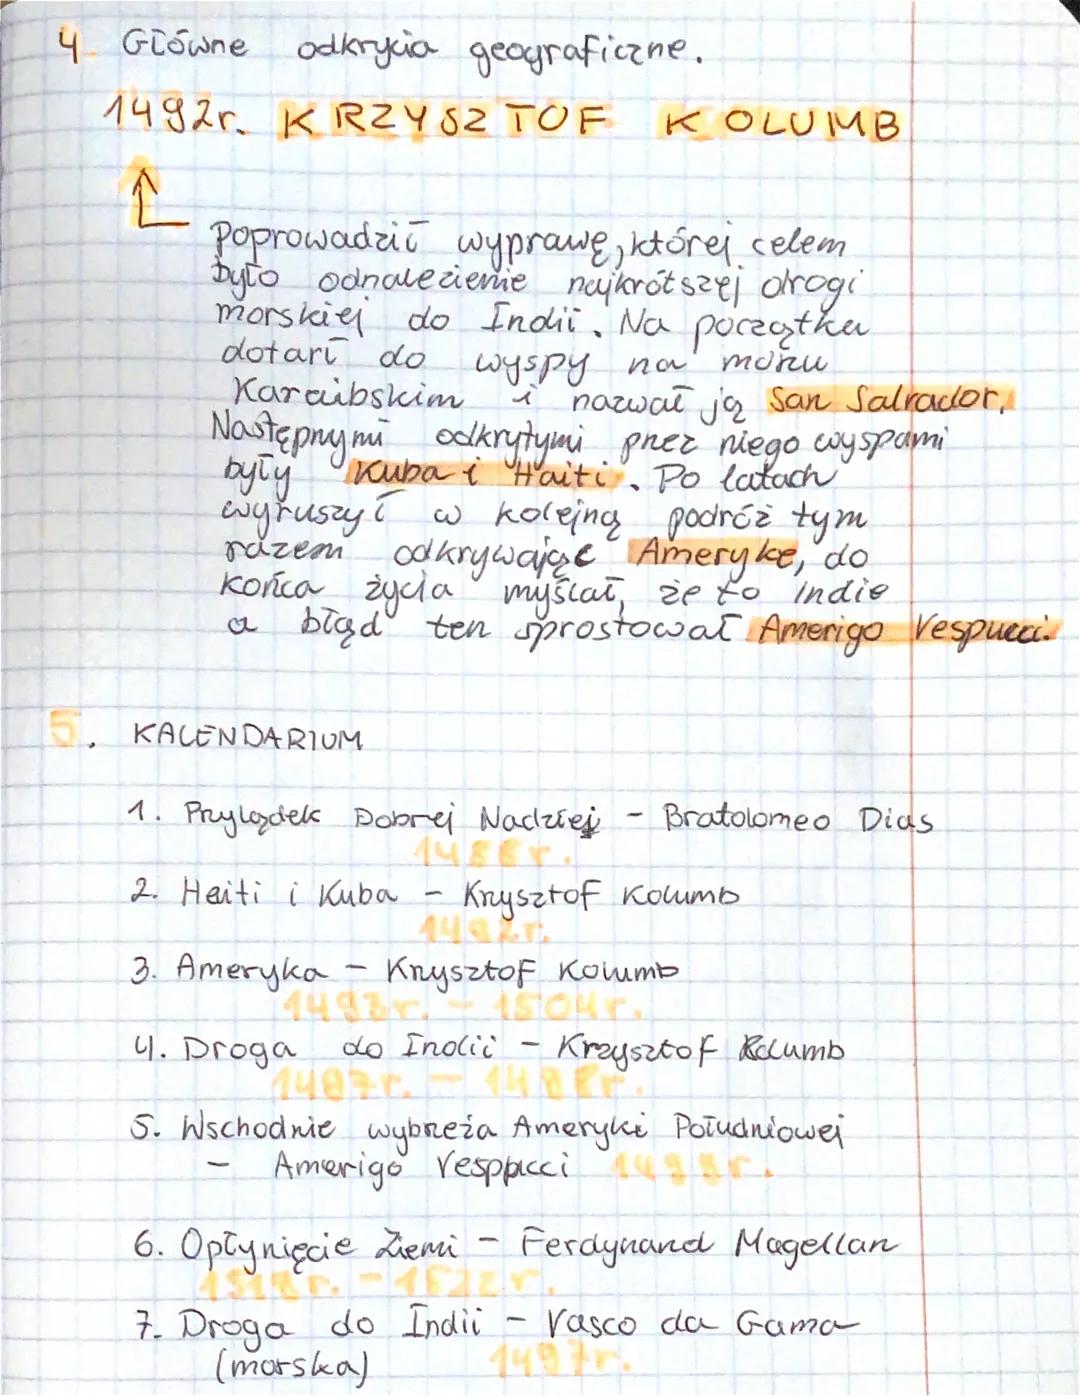 4. Główne odkrycia geograficzne.
1492r. KRZYSZTOF KOLUMB
Poprowadził wyprawę, której celem
było odnalezienie najkrótszej drogi
morskiej do Indii. Na początku
dotarł do wyspy na morzu
Karaibskim i nazwał ją San Salvador.
Następnymi odkrytymi przez niego wyspami
były Kuba i Haiti. Po latach
wyruszył w kolejną podróż tym
razem odkrywając Amerykę, do
końca życia myślał, że to indie
a błąd ten sprostował Amerigo Vespucci.
5. KALENDARIUM
1. Przylądek Dobrej Nadziej - Bratolomeo Dias
1488r.
2. Haiti i Kuba - Krzysztof Kolumb
1492r.
3. Ameryka - Krzysztof Kolumb
1493r. - 1504r.
4. Droga do Indii - Krzysztof Kolumb
1497r. - 1498r.
5. Wschodnie wybrzeża Ameryki Południowej
- Amerigo Vesppucci 1499r.
6. Opłynięcie Ziemi - Ferdynand Magellan
1519r. - 1522r.
7. Droga do Indii - Vasco da Gama
(morska) 1497r.